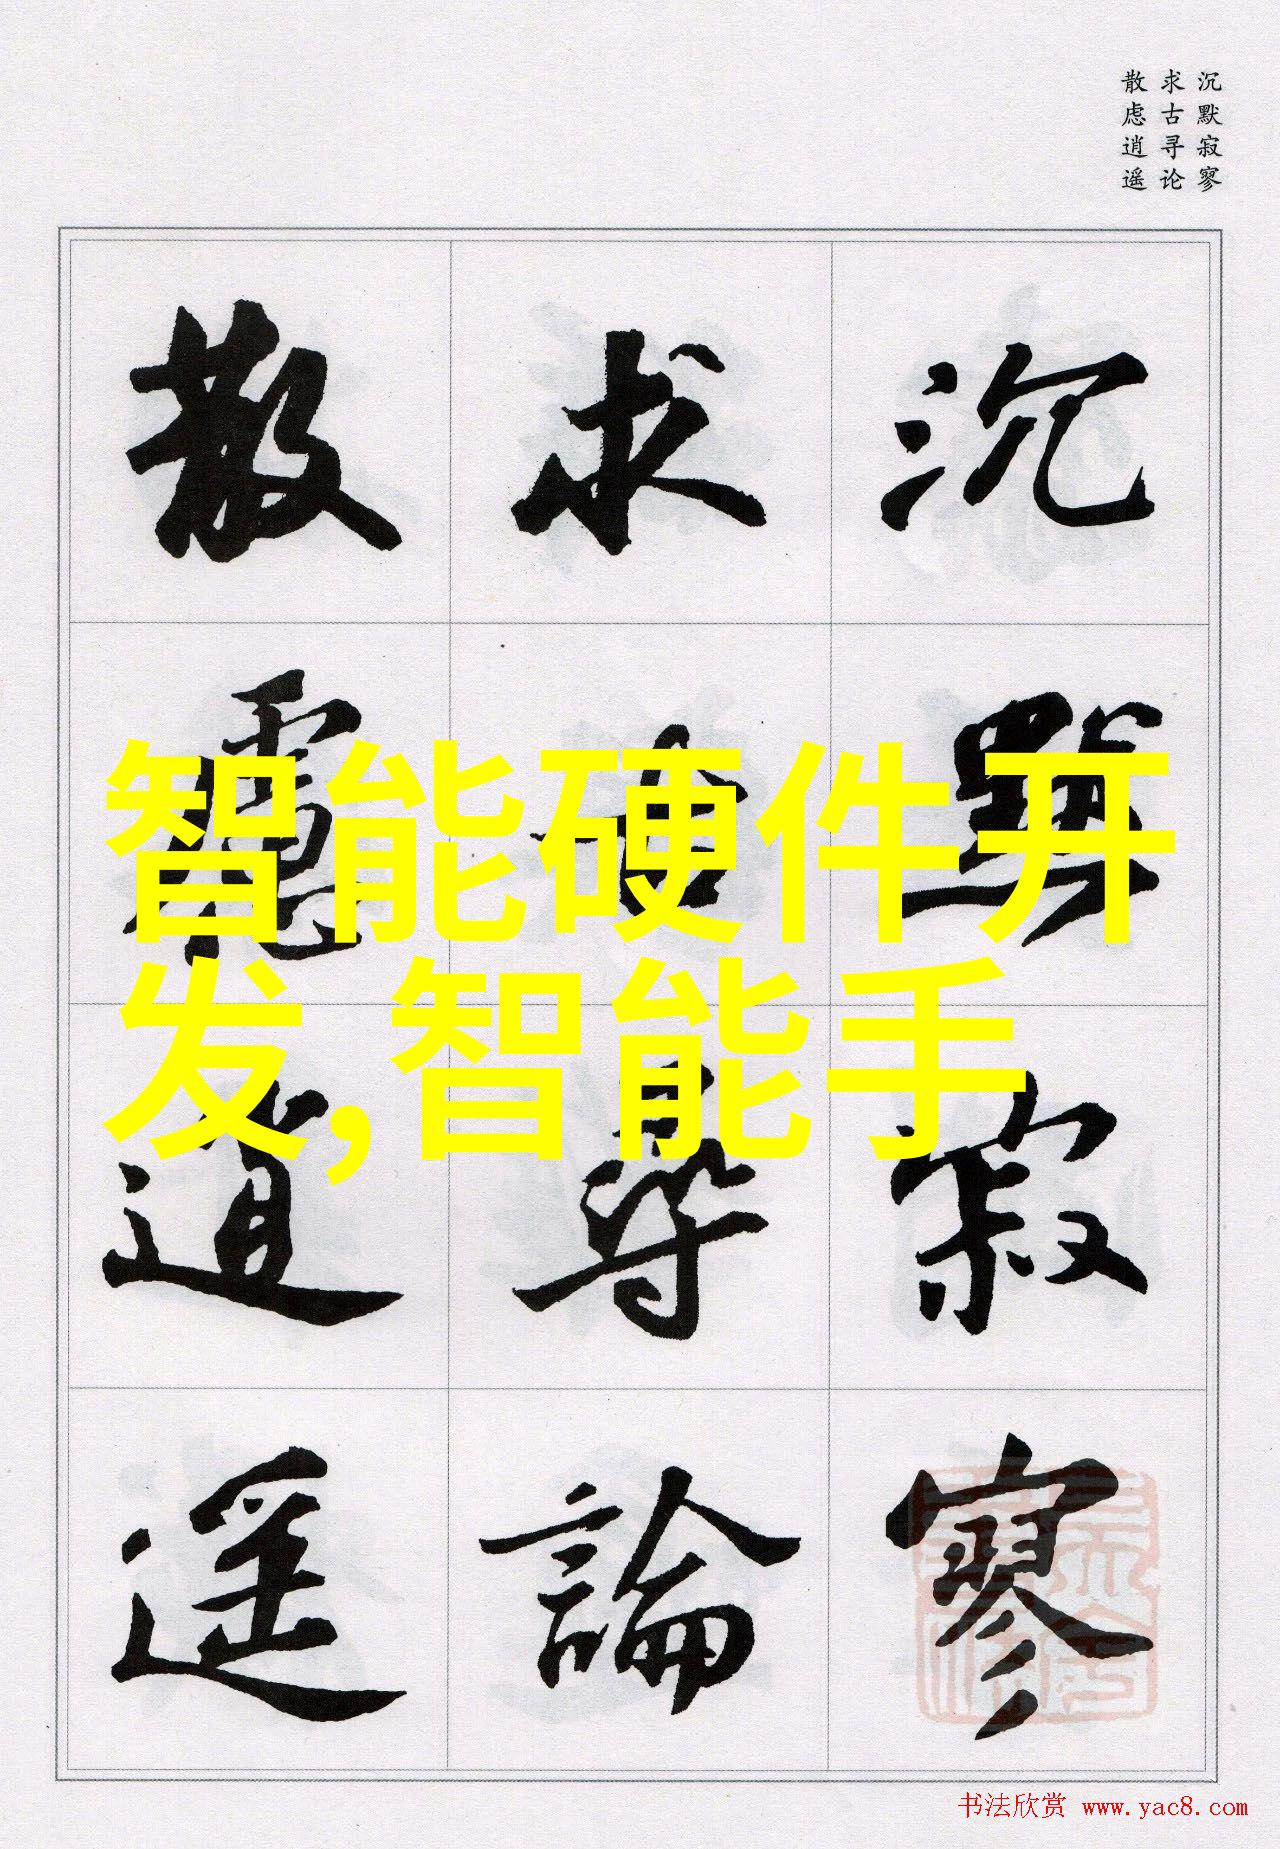 沉默寂寥
求古寻论
散虑逍遥
沉默寂寥
求古寻論
散慮逍遥
智能硬件开
发,智能手
书法欣赏 www.yac8.com